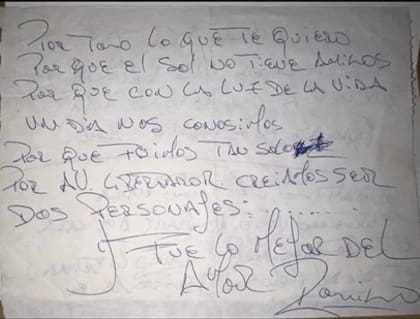 Por Todo lo que te quiero
Por que el sol no tiene Amigos
Por que con la luz de la vida
un dia nos conosimos
Por que Fuimos tan solo
Por AV. Libertador creiamos ser
dos personajes: . . . . . . .
y Fue lo mejor del
Amor